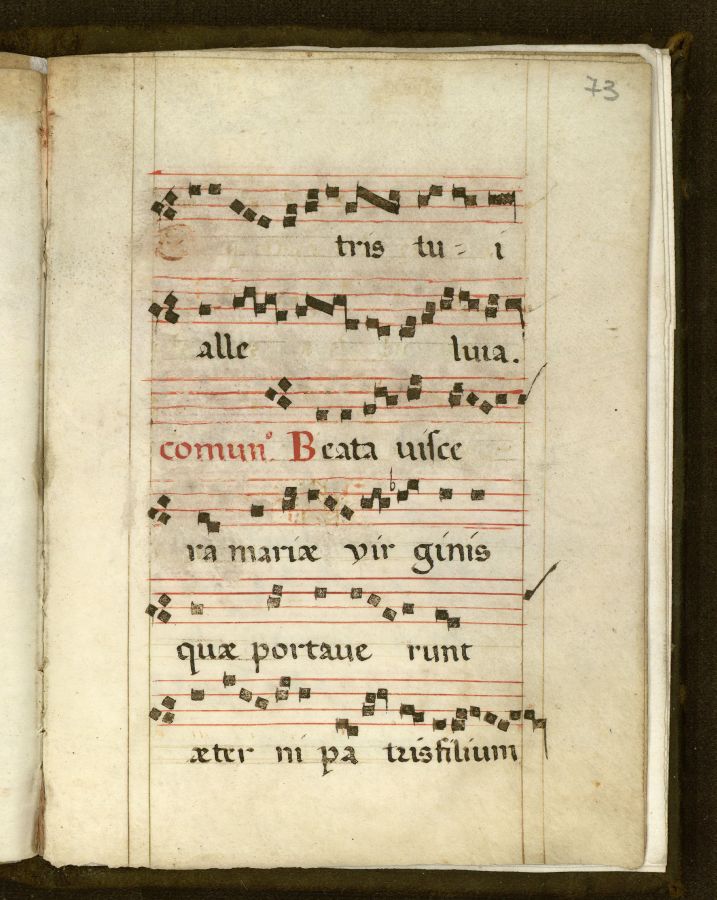 73
tris tu - i
alle luia.
comun° Beata visce
ra mariæ vir ginis
quæ portaue runt
æter ni pa trisfilium